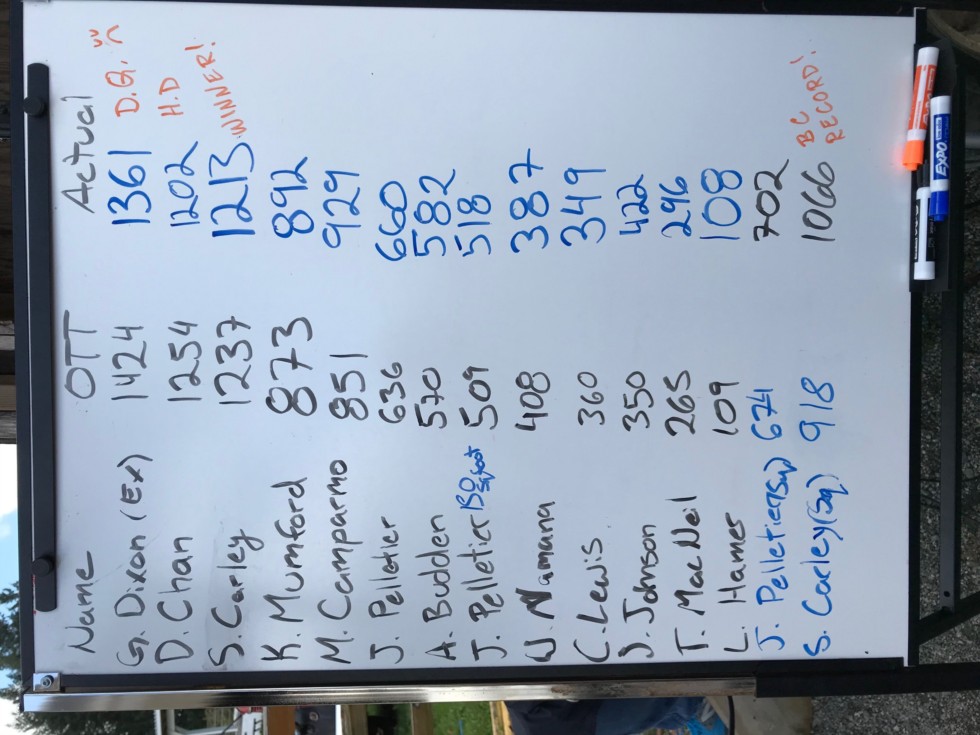 Name OTT Actual
G. Dixon (Ex) 1424 1361 D.Q.
D. Chan 1254 1202 H.D
S. Corley 1237 1213 WINNER!
K. Mumford 873 892
M. Camparmo 851 929
J. Pelletier 636 660
A. Budden 570 582
J. Pelletier 509 518
W. Namana 408 387
C. Lewis 360 349
J. Johnson 350 422
T. MacNeil 265 296
L. Hamer 109 108
J. Pelletier (Sq) 671 702
S. Corley (Sq) 918 1066 BC RECORD!
EXPO